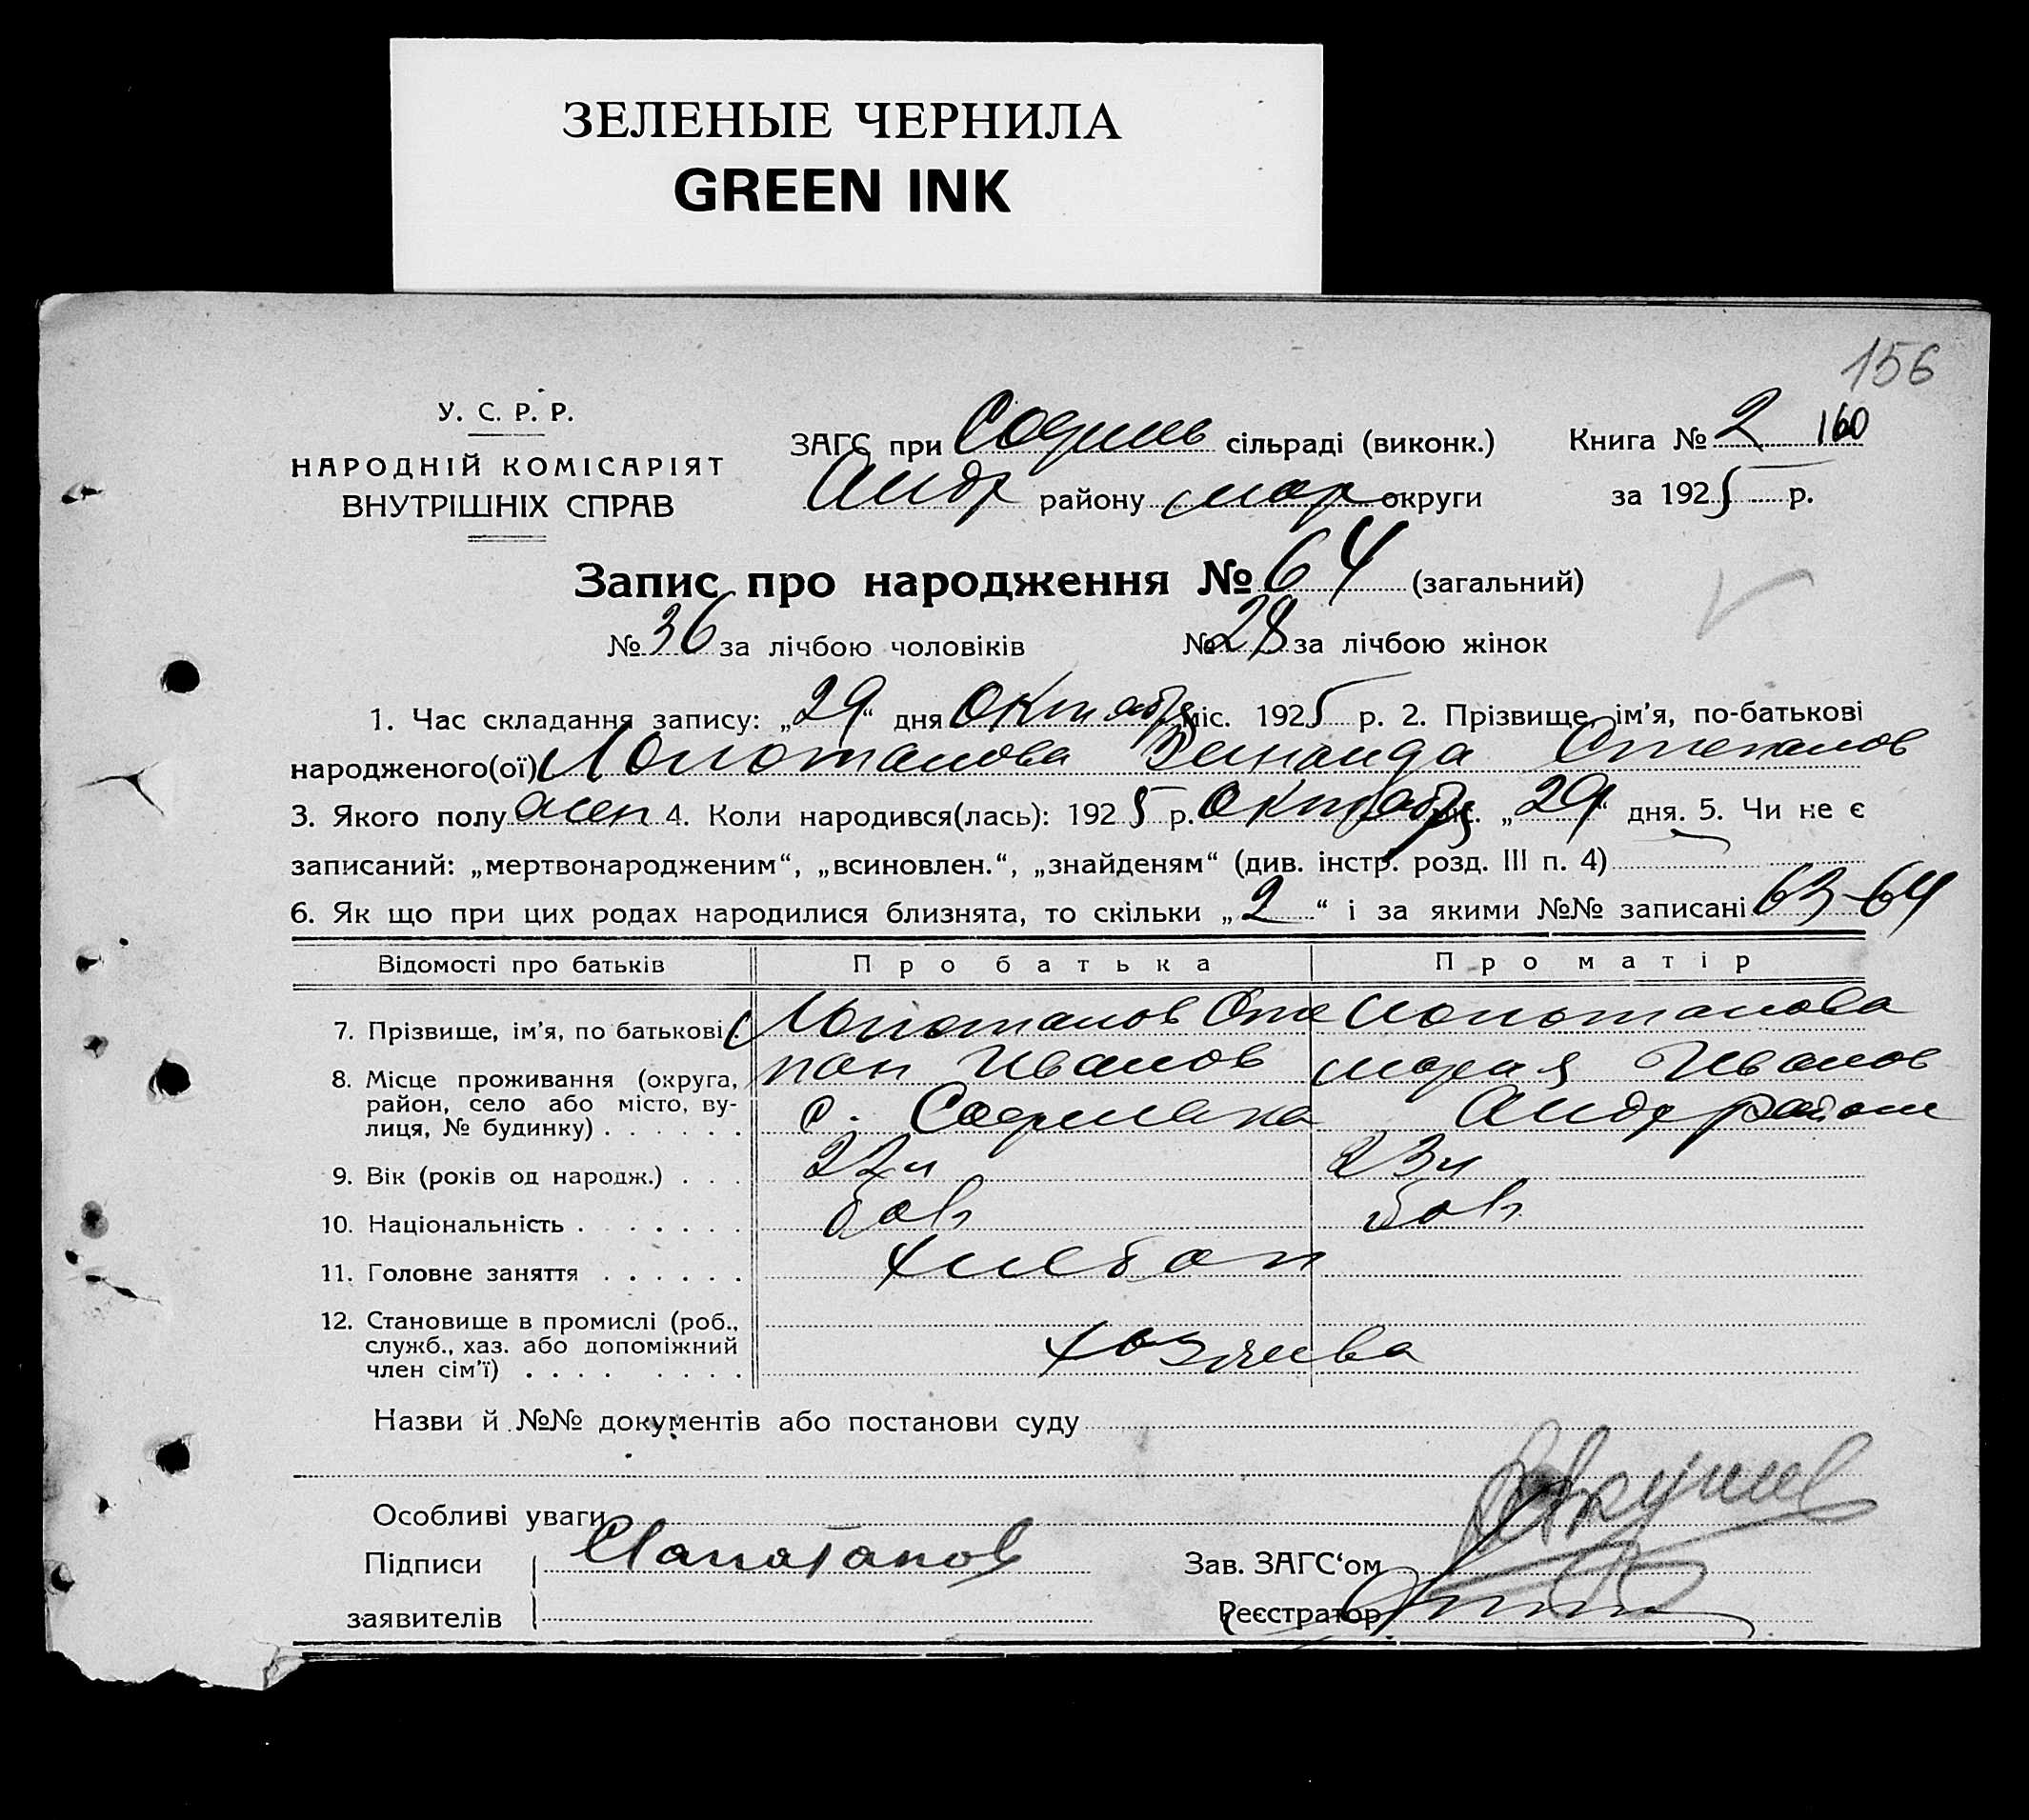 ЗЕЛЕНЫЕ ЧЕРНИЛА
GREEN INK
156
У. С. Р. Р.
НАРОДНІЙ КОМІСАРІЯТ
ВНУТРІШНІХ СПРАВ
ЗАГС при Софиев сільраді (виконк.) Книга № 2 160
Андр району мар округи за 1925 р.
Запис про народження № 64 (загальний)
№ 36 за лічбою чоловіків № 28 за лічбою жінок
1. Час складання запису: „29“ дня Октября міс. 1925 р. 2. Прізвище, ім’я, по-батькові
народженого(ої) Лопотанова Зинаида Степанов
3. Якого полу жен 4. Коли народився(лась): 1925 р. Октября міс. „29“ дня. 5. Чи не є
записаний: „мертвонародженим“, „всиновлен.“, „знайденям“ (див. інстр. розд. III п. 4)
6. Як що при цих родах народилися близнята, то скільки „2“ і за якими №№ записані 63-64
Відомості про батьків Про батька Про матір
7. Прізвище, ім’я, по батькові. Лопотанов Сте Лопотанова
пан Иванов мария Иванов
8. Місце проживання (округа,
район, село або місто, ву-
лиця, № будинку) . . . . . . с. Софиевка Андр район
9. Вік (років од народж.) . . . 22 23
10. Національність . . . . . .
11. Головне заняття . . . . . . хлебоп
12. Становище в промислі (роб.,
служб., хаз. або допоміжний
член сім’ї) . . . . . . . . хозяева
Назви й №№ документів або постанови суду
Особливі уваги
Підписи Лапатанов Зав. ЗАГС‘ом
заявителів Реєстратор